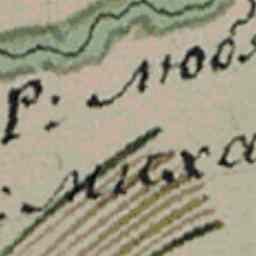 Р: любл
: миха